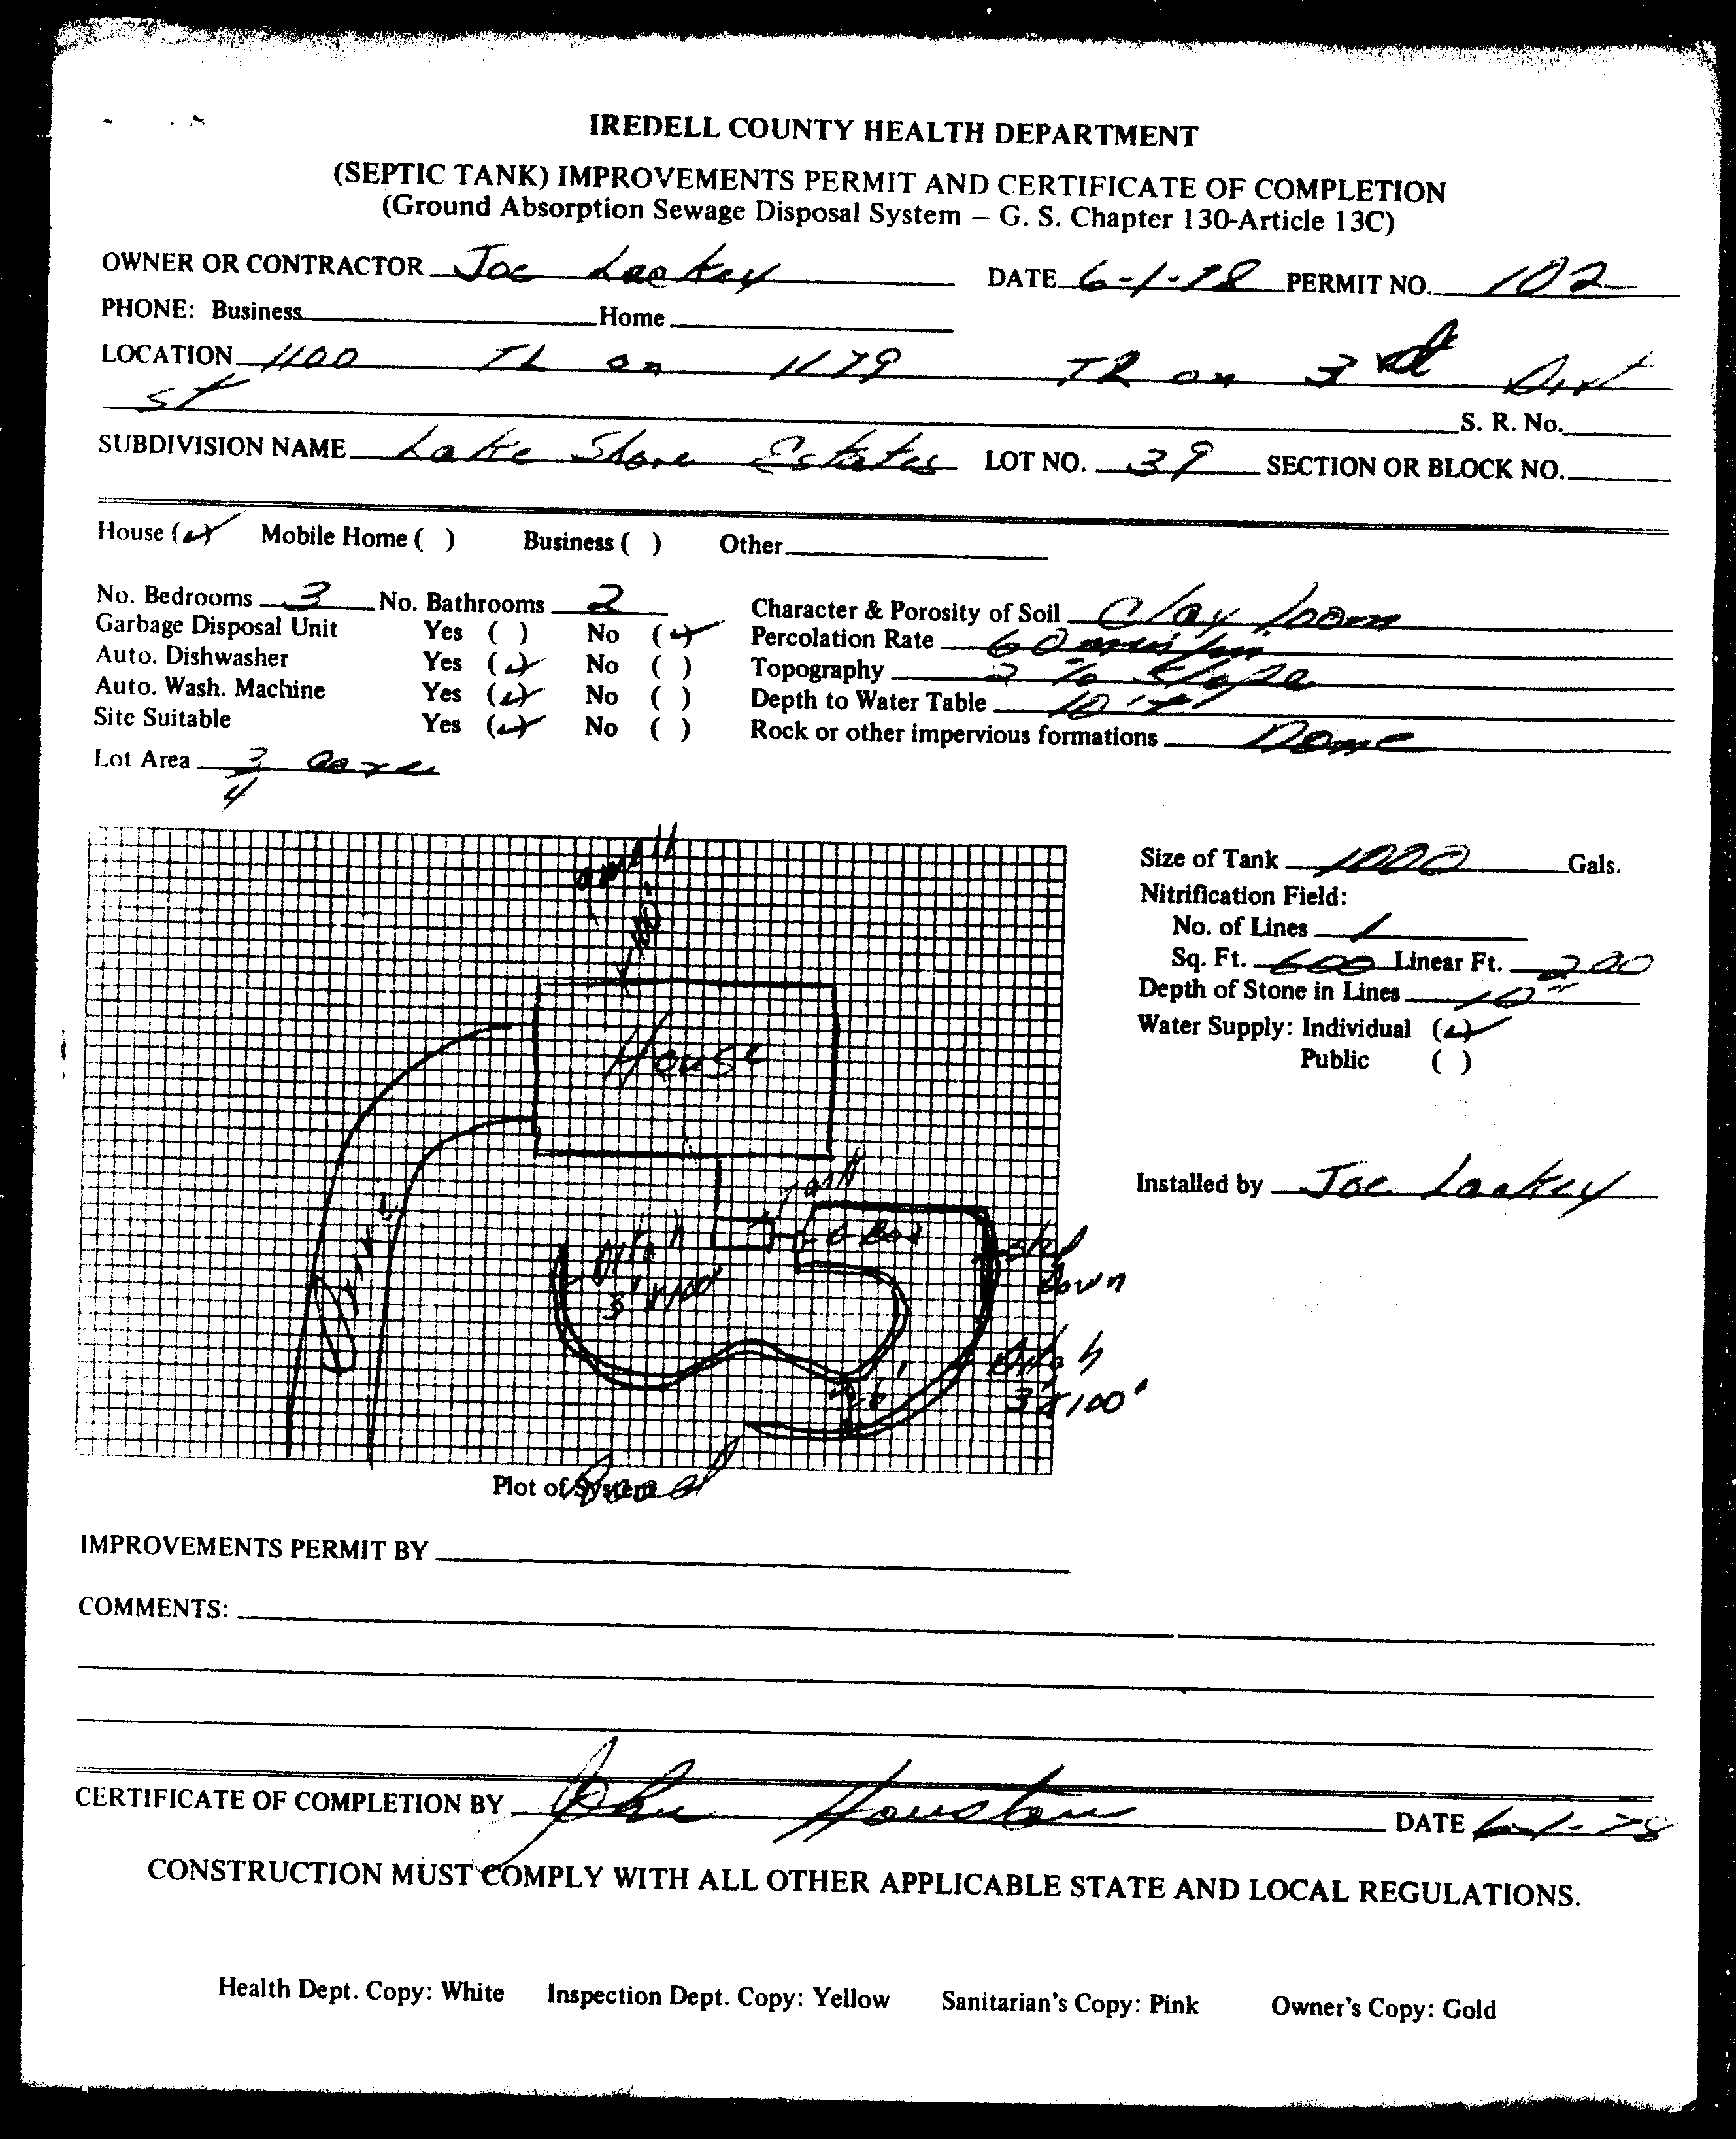 IREDELL COUNTY HEALTH DEPARTMENT
(SEPTIC TANK) IMPROVEMENTS PERMIT AND CERTIFICATE OF COMPLETION
(Ground Absorption Sewage Disposal System – G. S. Chapter 130-Article 13C)
OWNER OR CONTRACTOR Joe Lackey DATE 6-1-78 PERMIT NO. 102
PHONE: Business Home
LOCATION 1100 TL on 1179 TR on 3rd Dirt
st S. R. No.
SUBDIVISION NAME Lake Shore Estates LOT NO. 39 SECTION OR BLOCK NO.
House (✓) Mobile Home ( ) Business ( ) Other
No. Bedrooms 3 No. Bathrooms 2 Character & Porosity of Soil Clay loom
Garbage Disposal Unit Yes ( ) No (✓) Percolation Rate 60 min/in
Auto. Dishwasher Yes (✓) No ( ) Topography 2 % Slope
Auto. Wash. Machine Yes (✓) No ( ) Depth to Water Table 10'+
Site Suitable Yes (✓) No ( ) Rock or other impervious formations None
Lot Area 3/4 acre
well
100'
House
Drive
Tank
D Box
Ditch
3' x 100'
Step
Down
Ditch
3' x 100'
6'
Road
Plot of System
Size of Tank 1000 Gals.
Nitrification Field:
No. of Lines 1
Sq. Ft. 600 Linear Ft. 200
Depth of Stone in Lines 10"
Water Supply: Individual (✓)
Public ( )
Installed by Joe Lackey
IMPROVEMENTS PERMIT BY
COMMENTS:
CERTIFICATE OF COMPLETION BY John Houston DATE 6-1-78
CONSTRUCTION MUST COMPLY WITH ALL OTHER APPLICABLE STATE AND LOCAL REGULATIONS.
Health Dept. Copy: White Inspection Dept. Copy: Yellow Sanitarian's Copy: Pink Owner's Copy: Gold